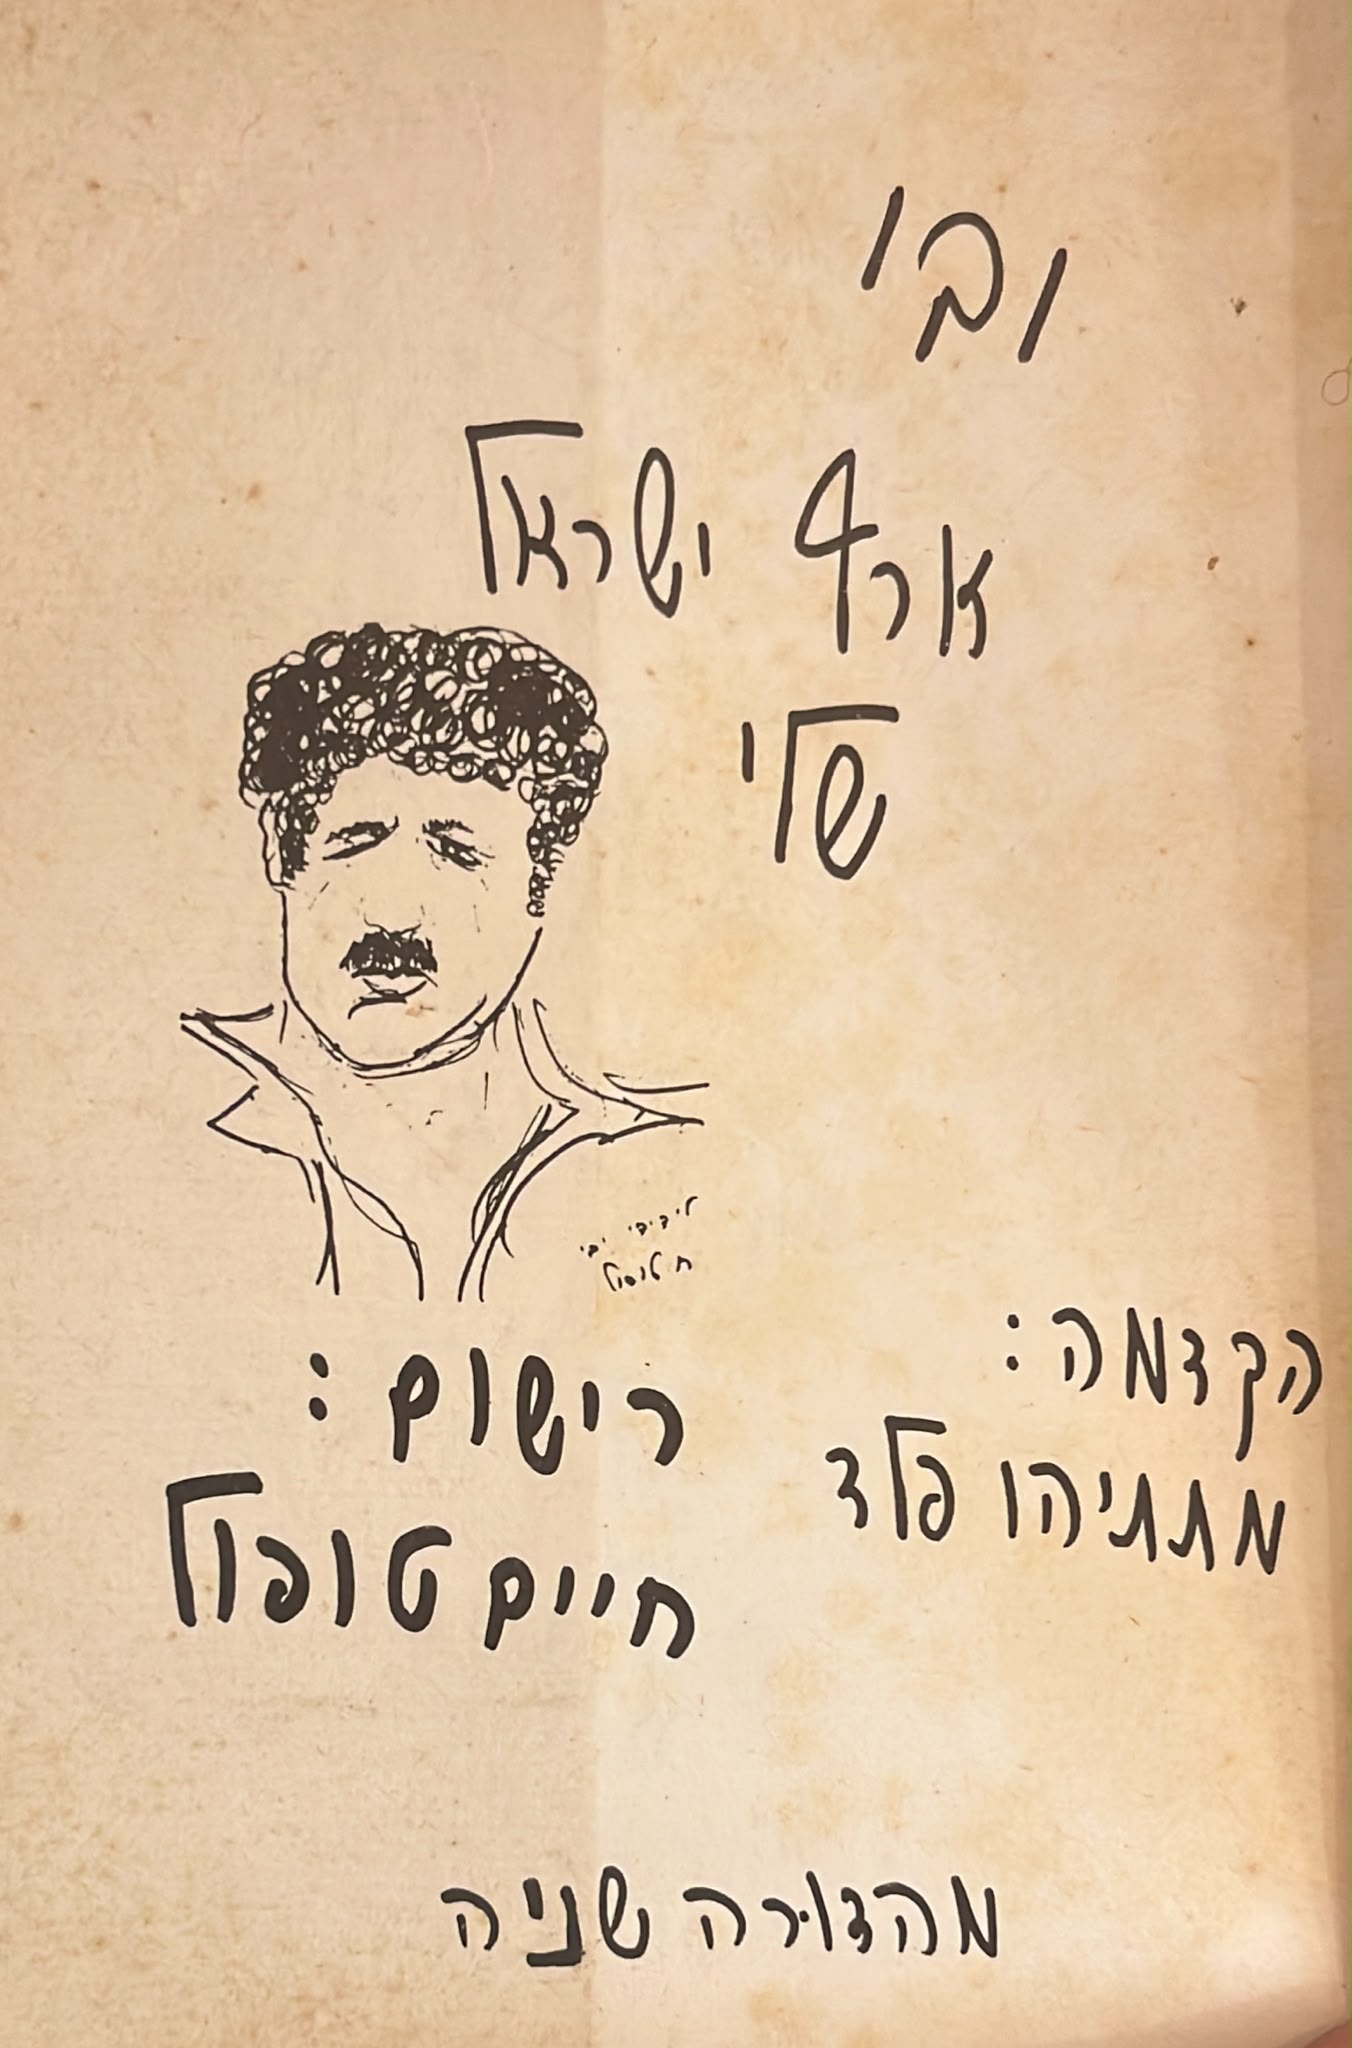 ובי
ארץ ישראל
שלי
לידידי ובי
ח. טופול
רישום:
חיים טופול
הקדמה:
מתתיהו פלד
מהדורה שניה